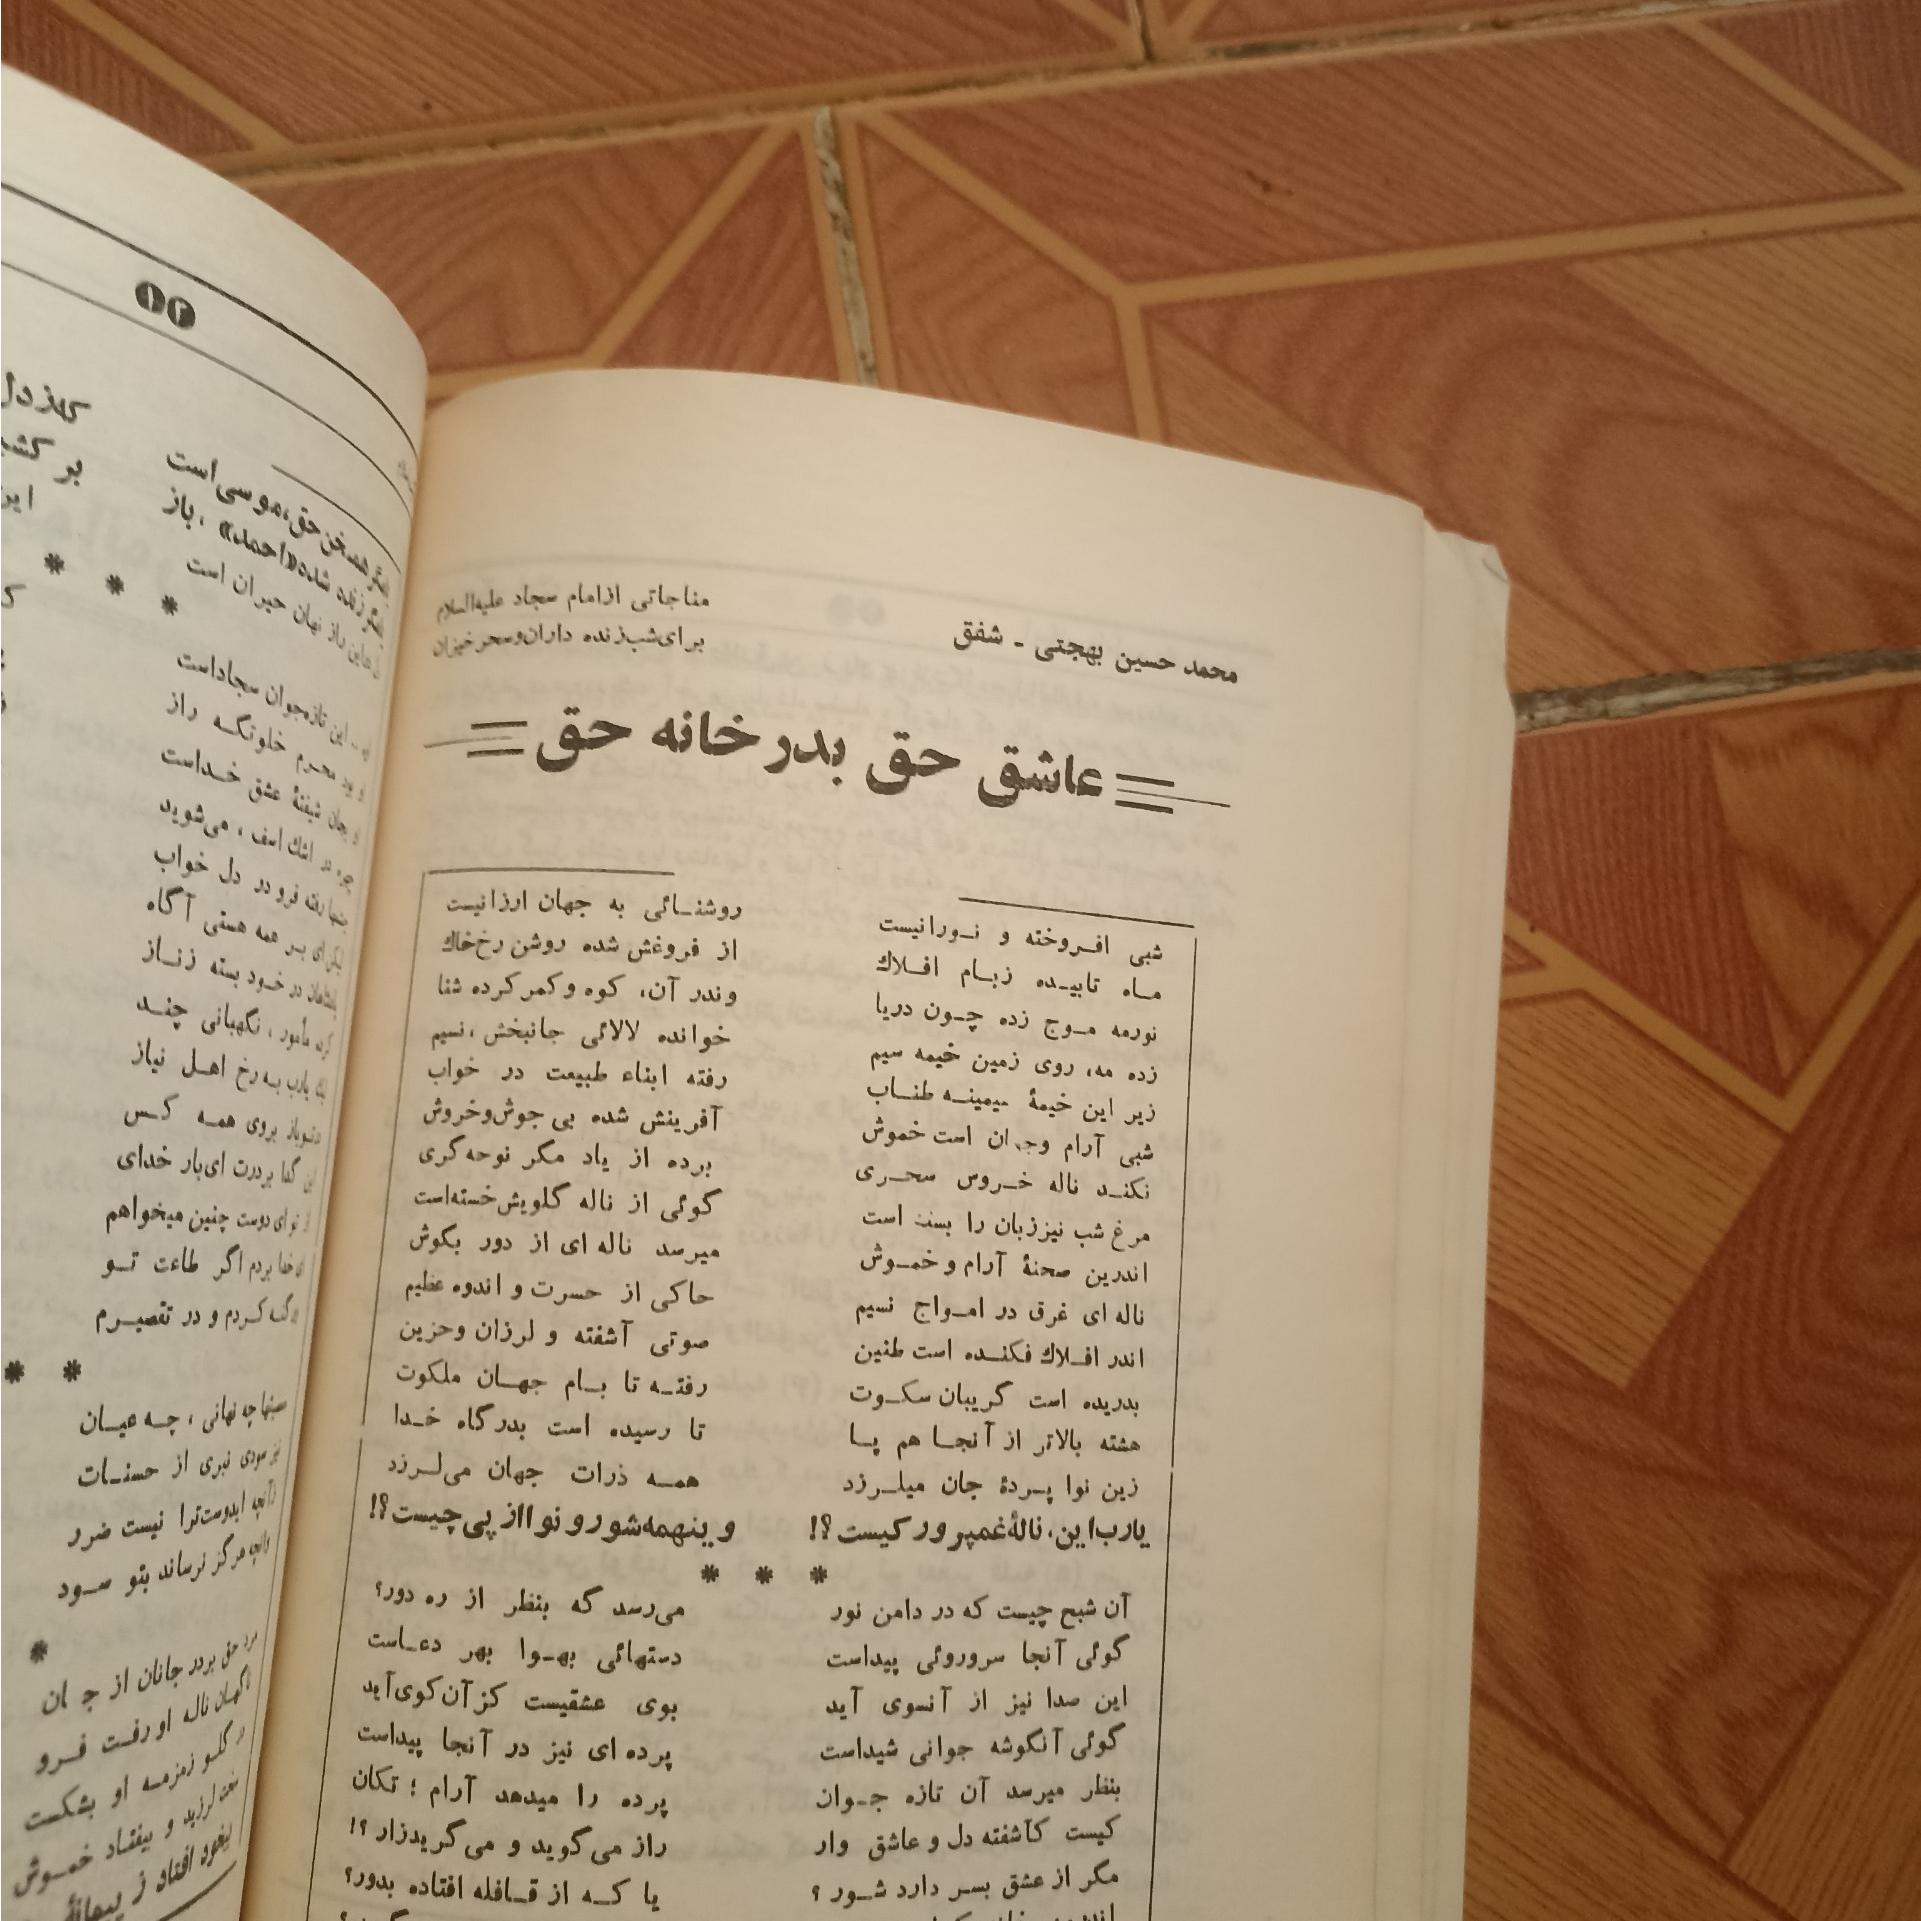 محمد حسین بهجتی - شفق
مناجاتی از امام سجاد علیه‌السلام
برای شب‌زنده داران و سحر خیزان
عاشق حق بدر خانه حق
شبی افروخته و نورانیست روشنائی به جهان ارزانیست
ماه تابیده زبام افلاك از فروغش شده روشن رخ خاك
نورمه موج زده چون دریا وندر آن، کوه و کمر کرده شنا
زده مه، روی زمین خیمه سیم خوانده لالائی جانبخش، نسیم
زیر این خیمۀ سیمینه طناب رفته ابناء طبیعت در خواب
شبی آرام وجهان است خموش آفرینش شده بی جوش‌وخروش
نکند ناله خروس سحری برده از یاد مگر نوحه‌گری
مرغ شب نیز زبان را بسته است گوئی از ناله گلویش خسته‌است
اندرین صحنۀ آرام و خموش میرسد ناله ای از دور بگوش
ناله ای غرق در امواج نسیم حاکی از حسرت و اندوه عظیم
اندر افلاك فکنده است طنین صوتی آشفته و لرزان وحزین
بدریده است گریبان سکوت رفته تا بام جهان ملکوت
هشته بالاتر از آنجا هم پا تا رسیده است بدرگاه خدا
زین نوا پردۀ جان میلرزد همه ذرات جهان می‌لرزد
یارب‌این، نالۀ‌غمپرور کیست؟! وینهمه‌شور و نوا از پی چیست؟!
* * *
آن شبح چیست که در دامن نور می‌رسد گه بنظر از ره دور؟
گوئی آنجا سروروئی پیداست دستهائی بهوا بهر دعاست
این صدا نیز از آنسوی آید بوی عشقیست کز آن کوی‌آید
گوئی آنگوشه جوانی شیداست پرده ای نیز در آنجا پیداست
بنظر میرسد آن تازه جوان پرده را میدهد آرام ؛ تکان
کیست کآشفته دل و عاشق وار راز می‌گوید و می‌گریدزار ؟!
مگر از عشق بسر دارد شور ؟ یا که از قافله افتاده بدور؟
۱۲
کاز دل
بر
همسخن حق، موسی است
زنده شده «احمد»، باز
راز نهان حیران است
* * *
این تازه‌جوان سجاداست
محرم خلوتگه راز
بجان شیفتۀ عشق خداست
در اشك اسف ، می‌شوید
رفته فرو در دل خواب
بر همه هستی آگاه
در خود بسته زناز
مأمور ، نگهبانی چند
یارب به رخ اهل نیاز
بروی همه کس
بردرت ای‌بار خدای
ای دوست چنین میخواهم
بردم اگر طاعت تو
کردم و در تقصیرم
* *
چه نهانی ، چه عیان
سودی نبری از حسنات
زآنچه ایدوست‌ترا نیست ضرر
هرگز نرساند بتو سود
*
حق بردر جانان از جان
ناله او رفت فرو
گلو زمزمه او بشکست
لرزید و بیفتاد خموش
افتاد ز پیمانۀ